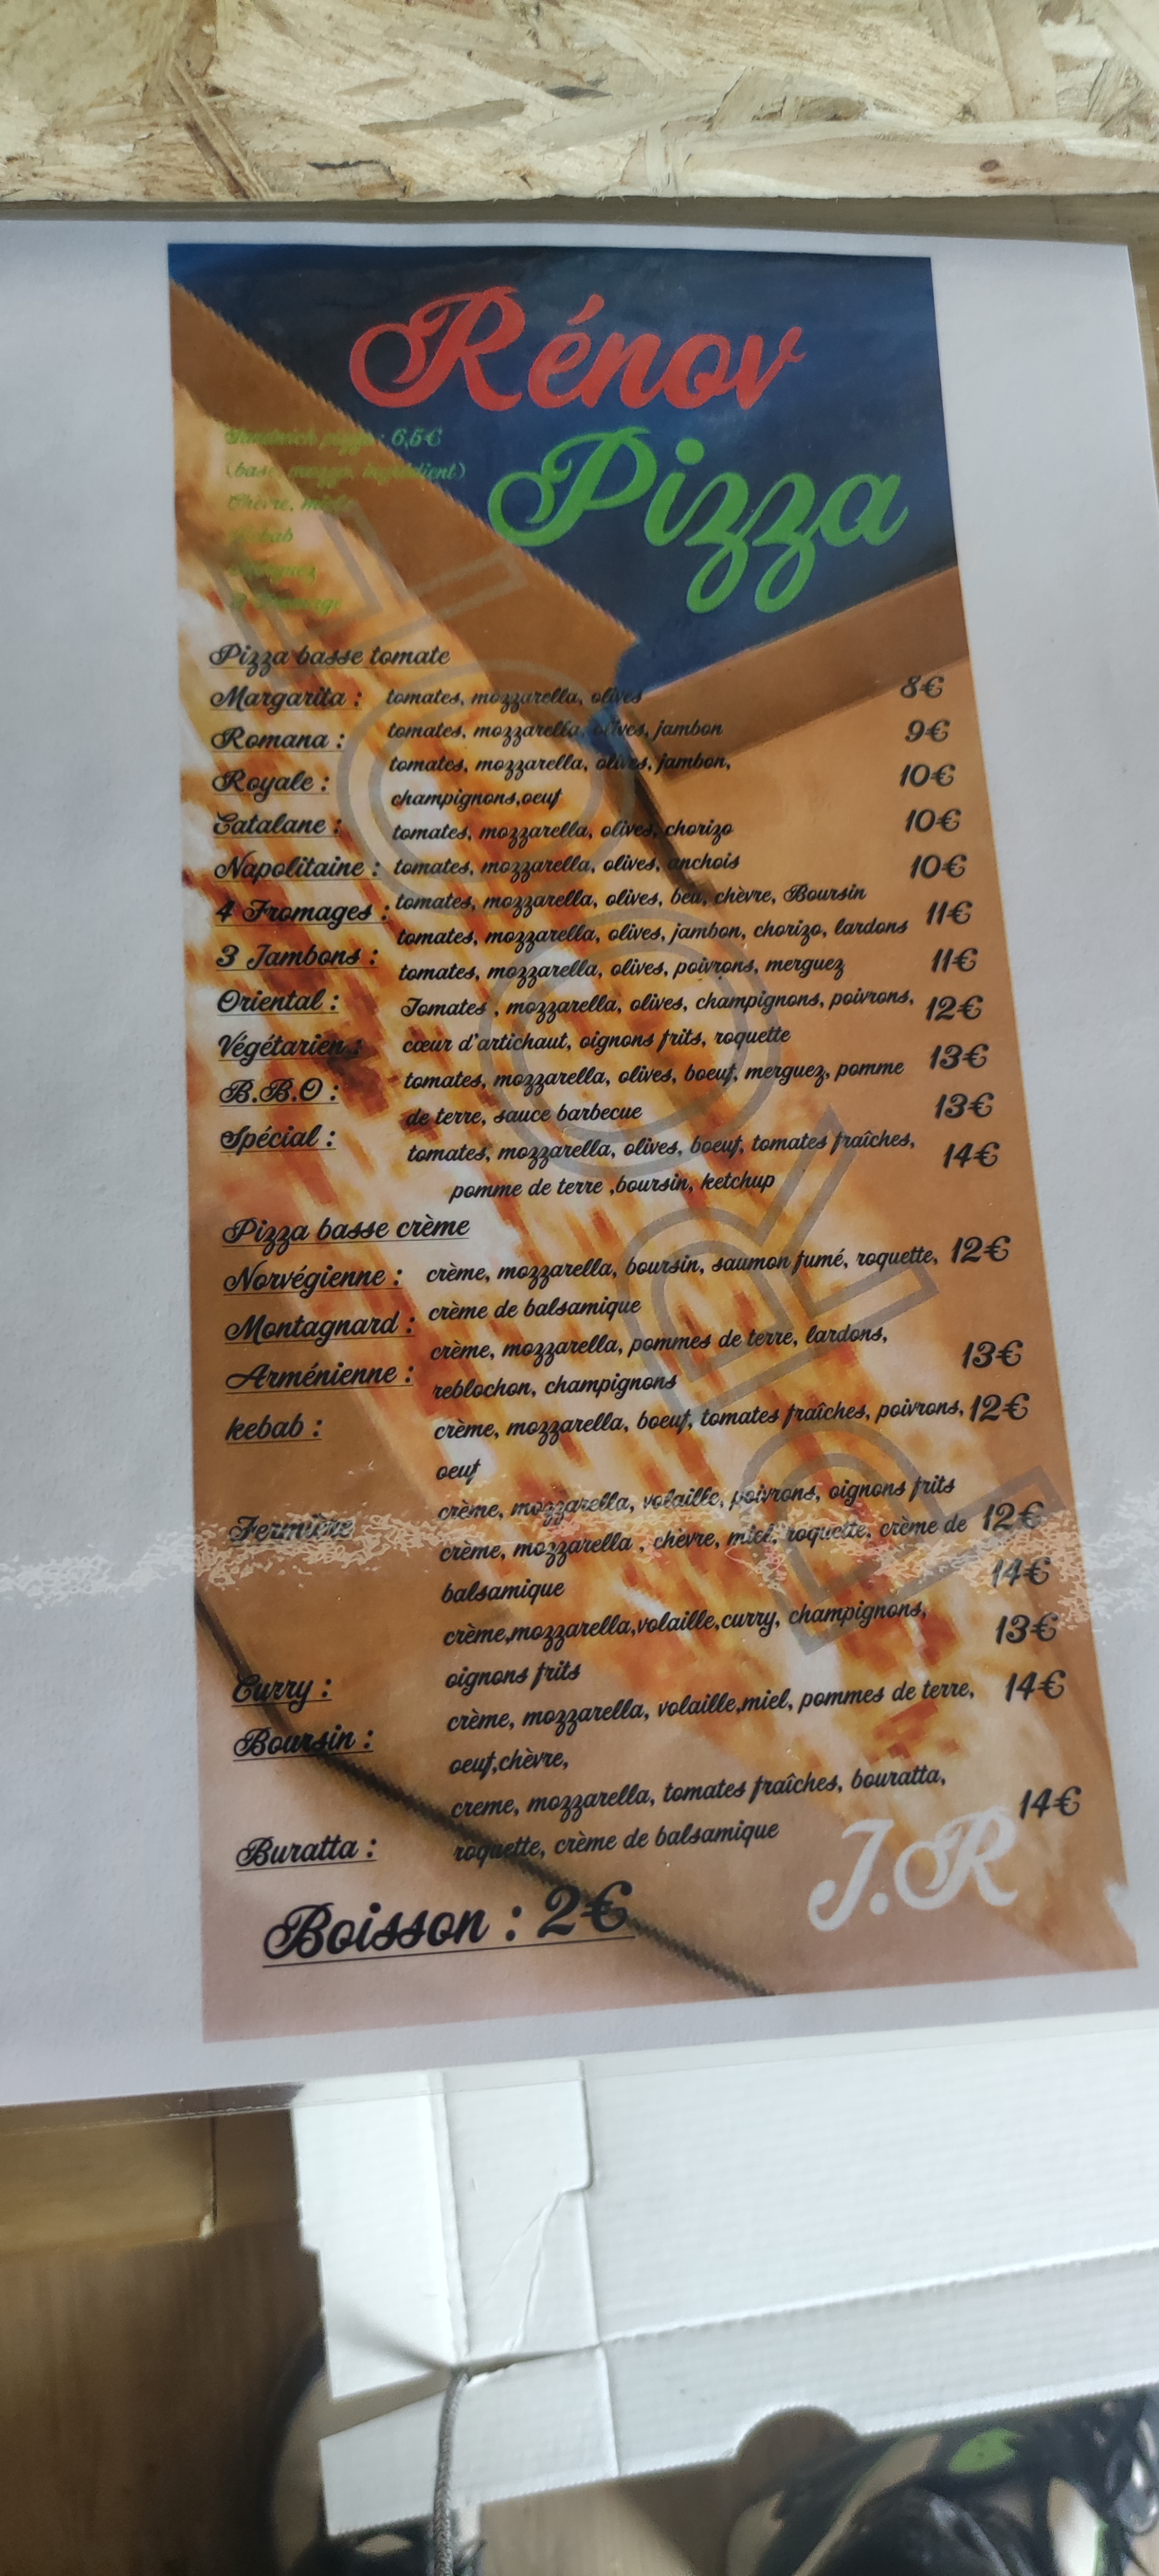 Rénov
Pizza
Sandwich pizza : 6,5€
(base, mozza, ingrédient)
Chèvre, miel
Kebab
Merguez
3 fromage
Pizza basse tomate
Margarita : tomates, mozzarella, olives 8€
Romana : tomates, mozzarella, olives, jambon 9€
Royale : tomates, mozzarella, olives, jambon, 10€
champignons,oeuf
Catalane : tomates, mozzarella, olives, chorizo 10€
Napolitaine : tomates, mozzarella, olives, anchois 10€
4 Fromages : tomates, mozzarella, olives, beu, chèvre, Boursin 11€
3 Jambons : tomates, mozzarella, olives, jambon, chorizo, lardons 11€
Oriental : tomates, mozzarella, olives, poivrons, merguez 12€
Végétarien : Tomates , mozzarella, olives, champignons, poivrons, 13€
cœur d'artichaut, oignons frits, roquette
B.B.Q : tomates, mozzarella, olives, boeuf, merguez, pomme 13€
de terre, sauce barbecue
Spécial : tomates, mozzarella, olives, boeuf, tomates fraîches, 14€
pomme de terre ,boursin, ketchup
Pizza basse crème
Norvégienne : crème, mozzarella, boursin, saumon fumé, roquette, 12€
crème de balsamique
Montagnard : crème, mozzarella, pommes de terre, lardons, 13€
reblochon, champignons
Arménienne : crème, mozzarella, boeuf, tomates fraîches, poivrons, 12€
oeuf
kebab : crème, mozzarella, volaille, poivrons, oignons frits 12€
Fermière crème, mozzarella , chèvre, miel, roquette, crème de 14€
balsamique
Curry : crème,mozzarella,volaille,curry, champignons, 13€
oignons frits
Boursin : crème, mozzarella, volaille,miel, pommes de terre, 14€
oeuf,chèvre,
Buratta : creme, mozzarella, tomates fraîches, bouratta, 14€
roquette, crème de balsamique
Boisson : 2€
J.R